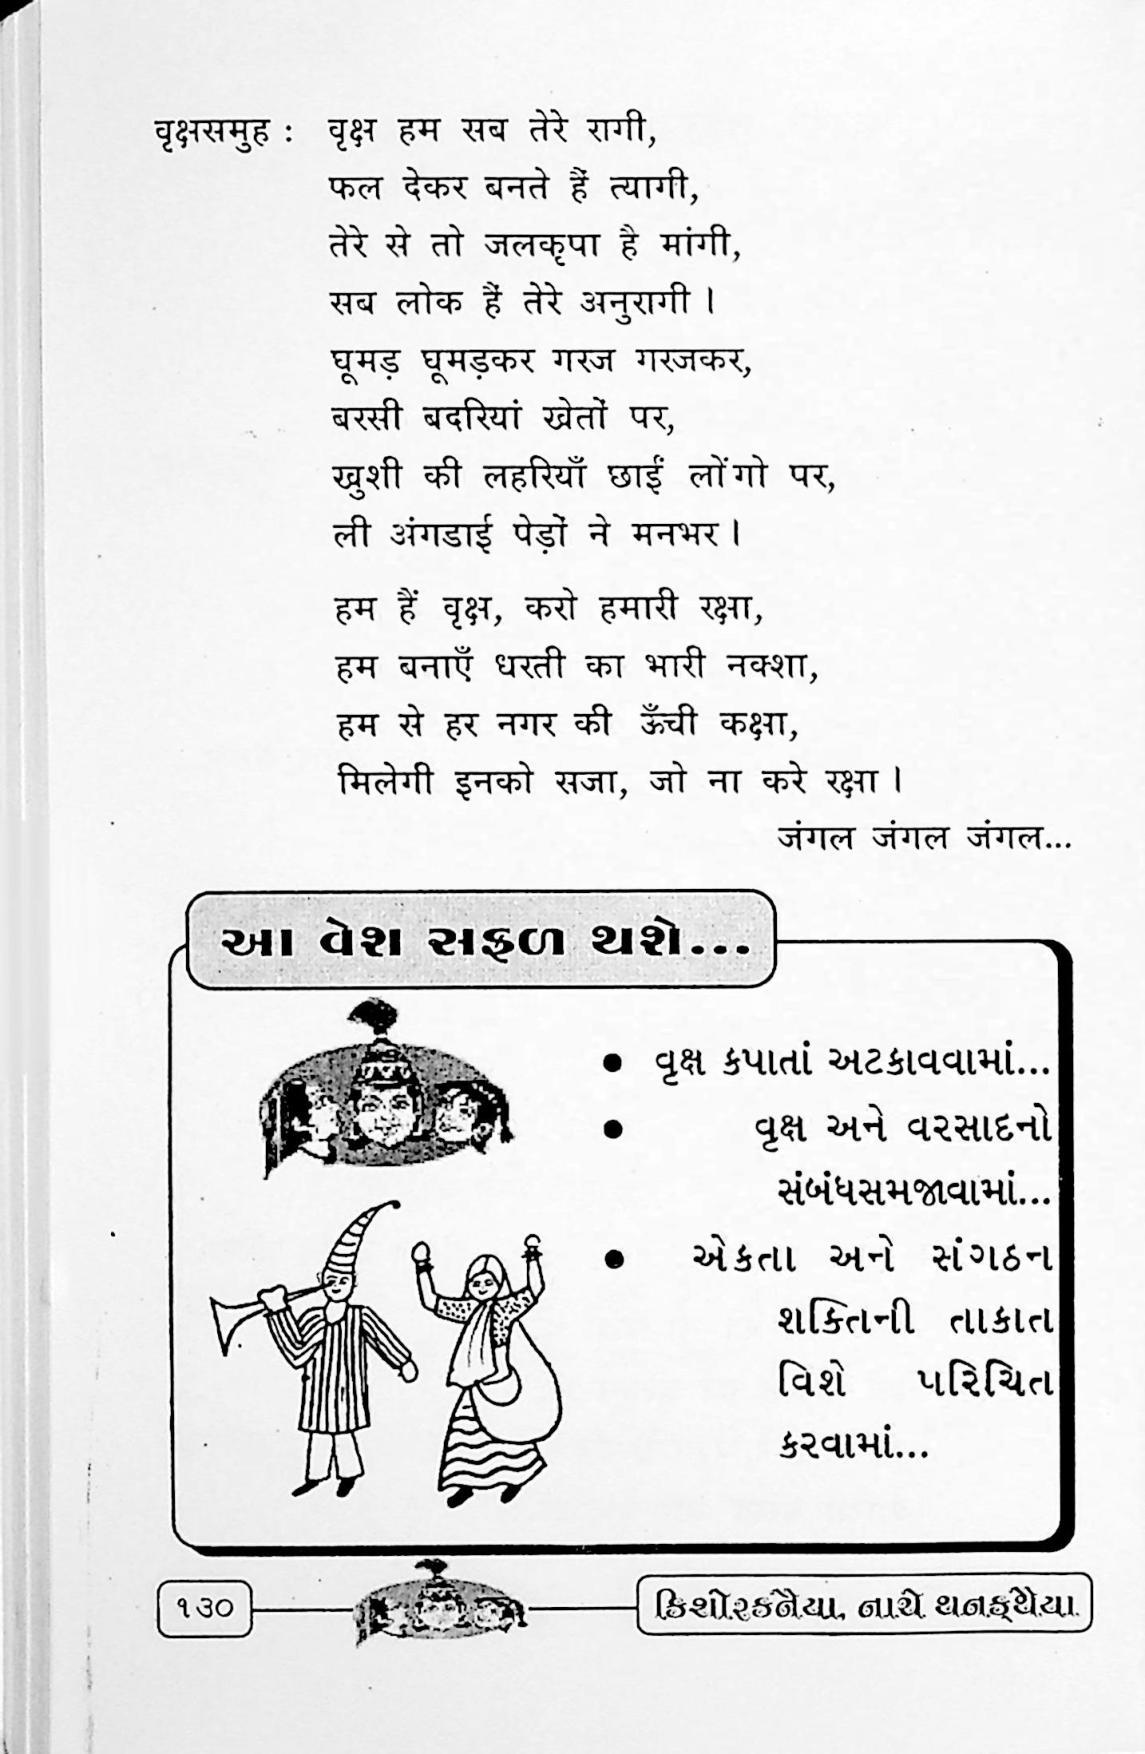 वृक्षसमुह : वृक्ष हम सब तेरे रागी,
फल देकर बनते हैं त्यागी,
तेरे से तो जलकृपा है मांगी,
सब लोक हैं तेरे अनुरागी ।
घूमड़ घूमड़कर गरज गरजकर,
बरसी बदरियां खेतों पर,
खुशी की लहरियाँ छाईं लोंगो पर,
ली अंगडाई पेड़ों ने मनभर ।
हम हैं वृक्ष, करो हमारी रक्षा,
हम बनाएँ धरती का भारी नक्शा,
हम से हर नगर की ऊँची कक्षा,
मिलेगी इनको सजा, जो ना करे रक्षा ।
जंगल जंगल जंगल...
આ વેશ સફળ થશે...
• વૃક્ષ કપાતાં અટકાવવામાં...
• વૃક્ષ અને વરસાદનો
સંબંધસમજાવામાં...
• એકતા અને સંગઠન
શક્તિની તાકાત
વિશે પરિચિત
કરવામાં...
૧૩૦
કિશોરકનૈયા, નાચે થનક્થૈયા